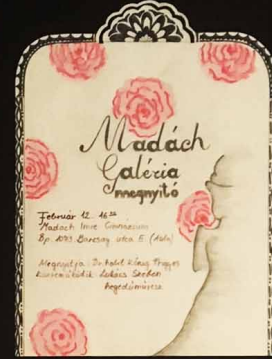 Madách
Galéria
megnyitó
Február 12. 16
Madách Imre Gimnázium
Bp. 1073 Barcsay utca 5. (Aula)
Megnyitja: Dr.
Közreműködik Lukács
hegedűművész